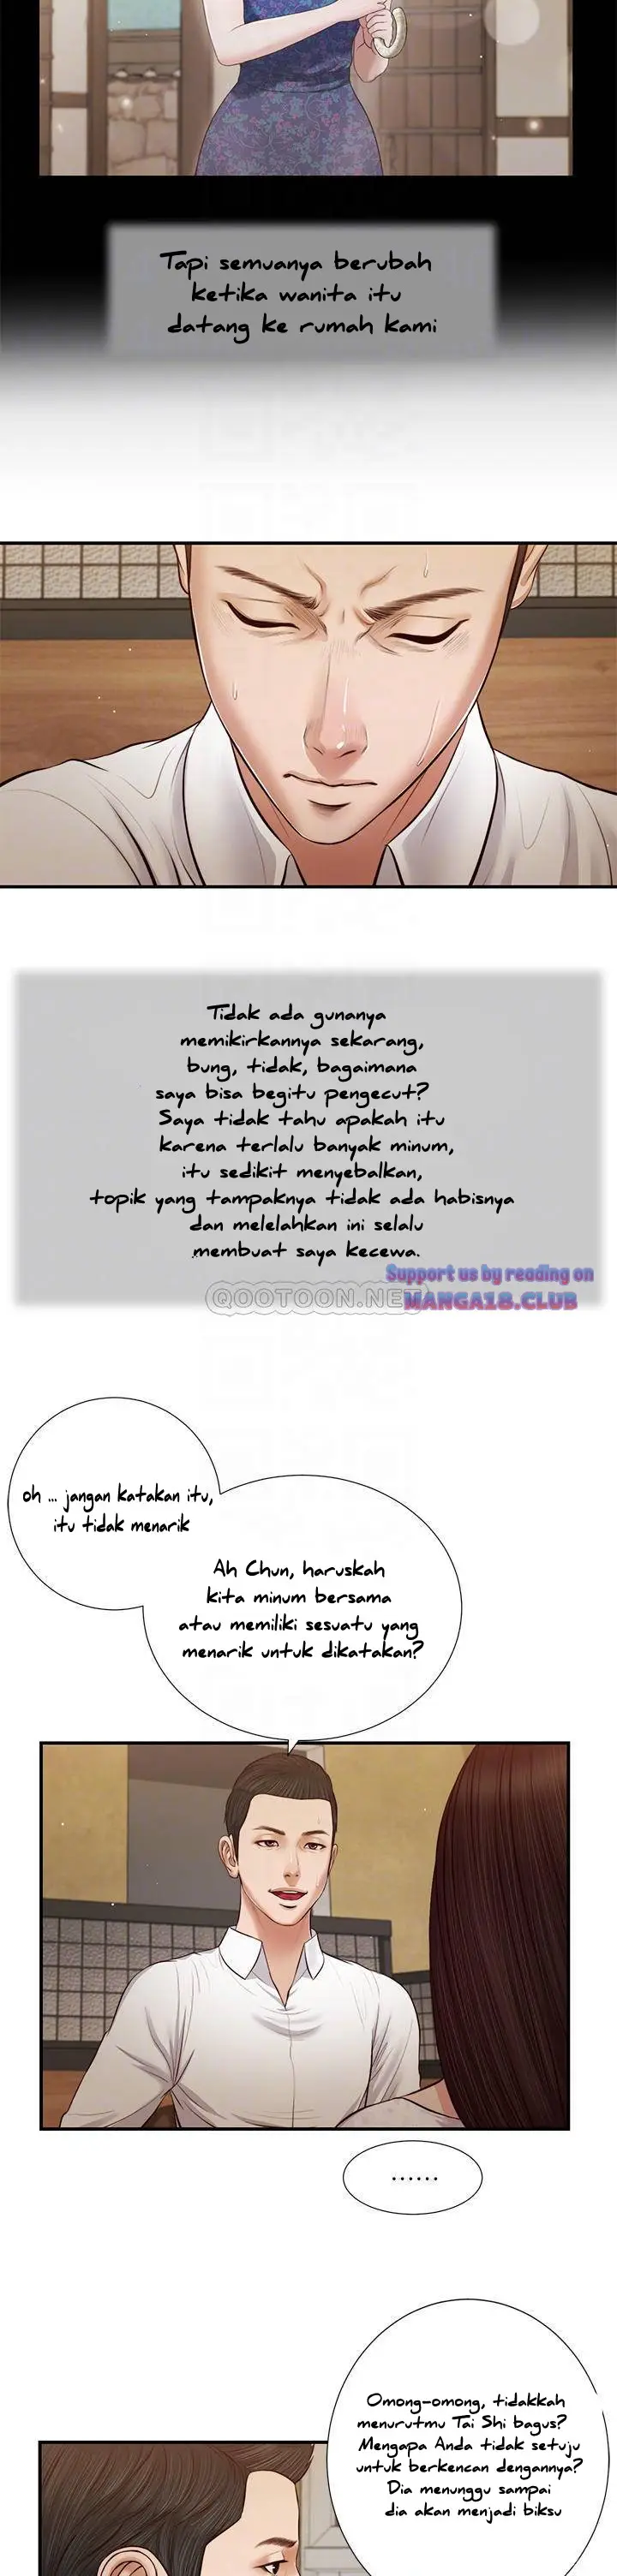 Tapi semuanya berubah
ketika wanita itu
datang ke rumah kami
Tidak ada gunanya
memikirkannya sekarang,
bung, tidak, bagaimana
saya bisa begitu pengecut?
Saya tidak tahu apakah itu
karena terlalu banyak minum,
itu sedikit menyebalkan,
topik yang tampaknya tidak ada habisnya
dan melelahkan ini selalu
membuat saya kecewa.
Support us by reading on
QOOTOON.NET
MANGA18.CLUB
oh ... jangan katakan itu,
itu tidak menarik
Ah Chun, haruskah
kita minum bersama
atau memiliki sesuatu yang
menarik untuk dikatakan?
......
Omong-omong, tidakkah
menurutmu Tai Shi bagus?
Mengapa Anda tidak setuju
untuk berkencan dengannya?
Dia menunggu sampai
dia akan menjadi biksu